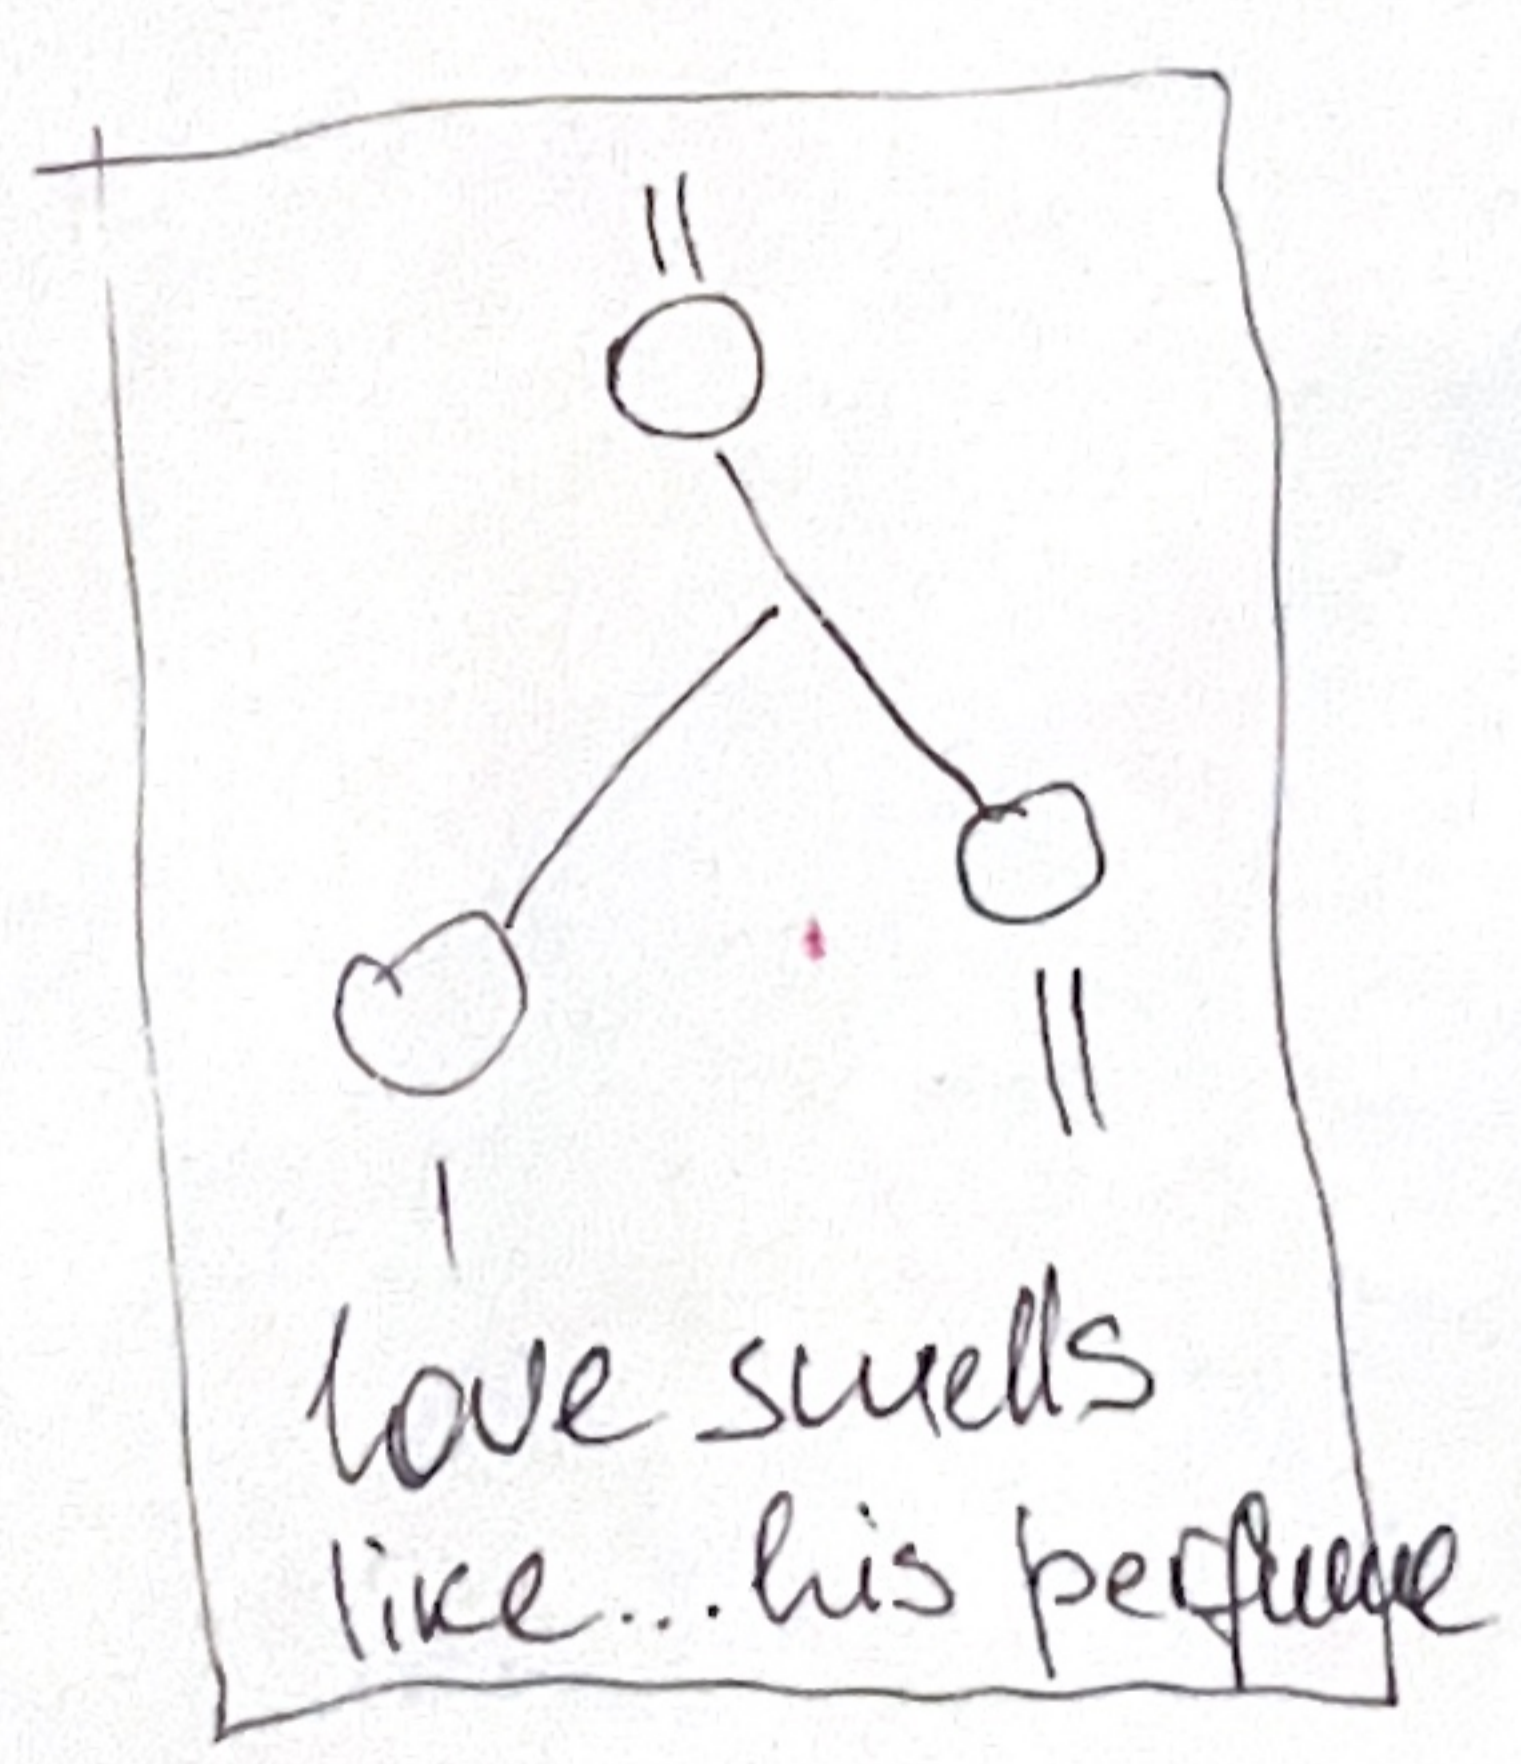 ||
||
|
love smells
like...his perfume